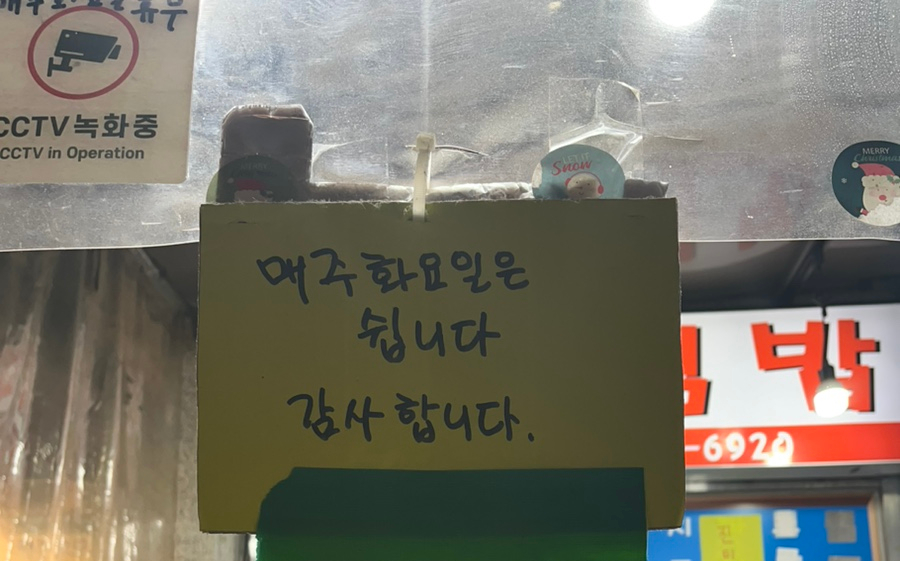 매주 화요일 휴무
CCTV 녹화중
CCTV in Operation
Snow
MERRY
Christmas
매주 화요일은
쉽니다
감사합니다.
김밥
-6920